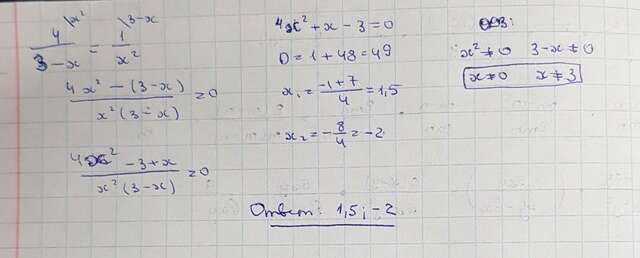 4\x² / 3-x = 1\3-x / x²
4x² - (3-x) / x²(3-x) = 0
4x² - 3 + x / x²(3-x) = 0
4x² + x - 3 = 0
D = 1 + 48 = 49
x₁ = -1+7 / 4 = 1,5
x₂ = -8/4 = -2
Ответ: 1,5; -2
ОДЗ:
x² ≠ 0 3-x ≠ 0
x ≠ 0 x ≠ 3